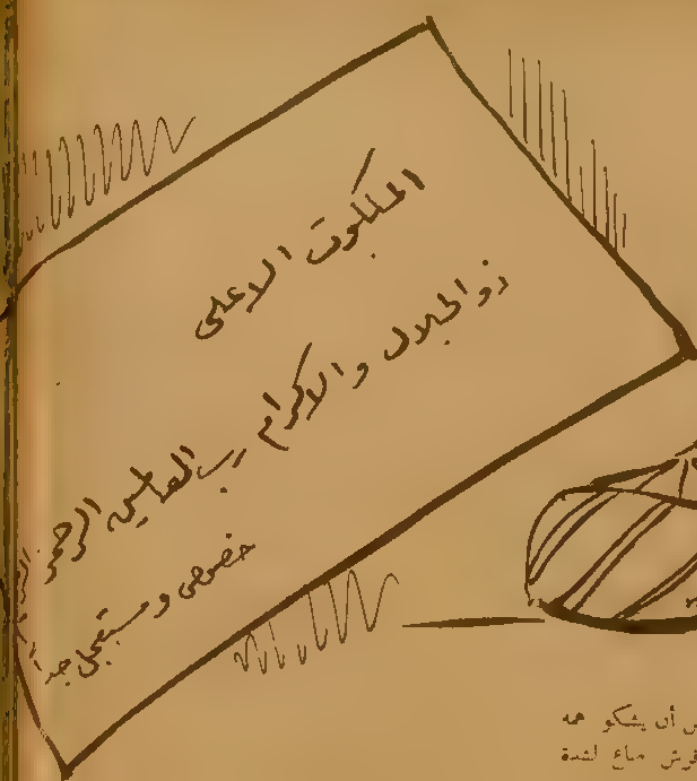 الملكوت الاعلى
ذو الجلال والاكرام رب العالمين الرحمن
خصوصى ومستعجل جداً
أن يشكو همه
قرش صاغ لشدة